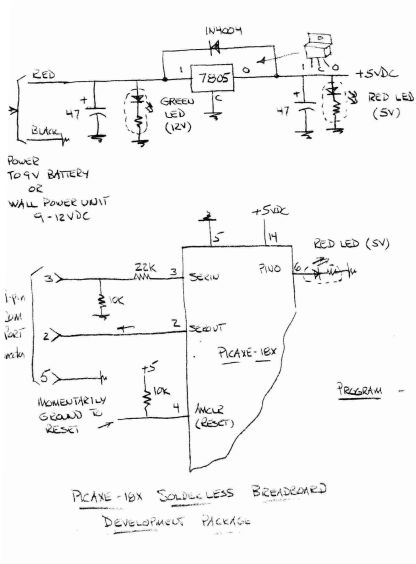 IN4004
RED
1
7805
O
1 C O
+5VDC
C
+
47
GREEN
LED
(12V)
+
47
RED LED
(5V)
BLACK
POWER
TO 9V BATTERY
OR
WALL POWER UNIT
9-12VDC
+5VDC
5
14
RED LED (5V)
3
22K
3
SERIN
PIN0
6
10K
2
2
SEROUT
PORT
PICAXE-18X
5
+5
10K
MOMENTARILY
GROUND TO
RESET
4
/MCLR
(RESET)
PROGRAM -
PICAXE-18X SOLDERLESS BREADBOARD
DEVELOPMENT PACKAGE